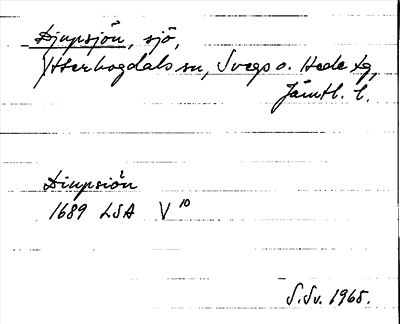 Djupsjön, sjö,
Ytterhogdals sn, Svegs o. Hede tg,
Jämtl. l.
Diupsiön
1689 LSA V 10
S.Sv. 1965.